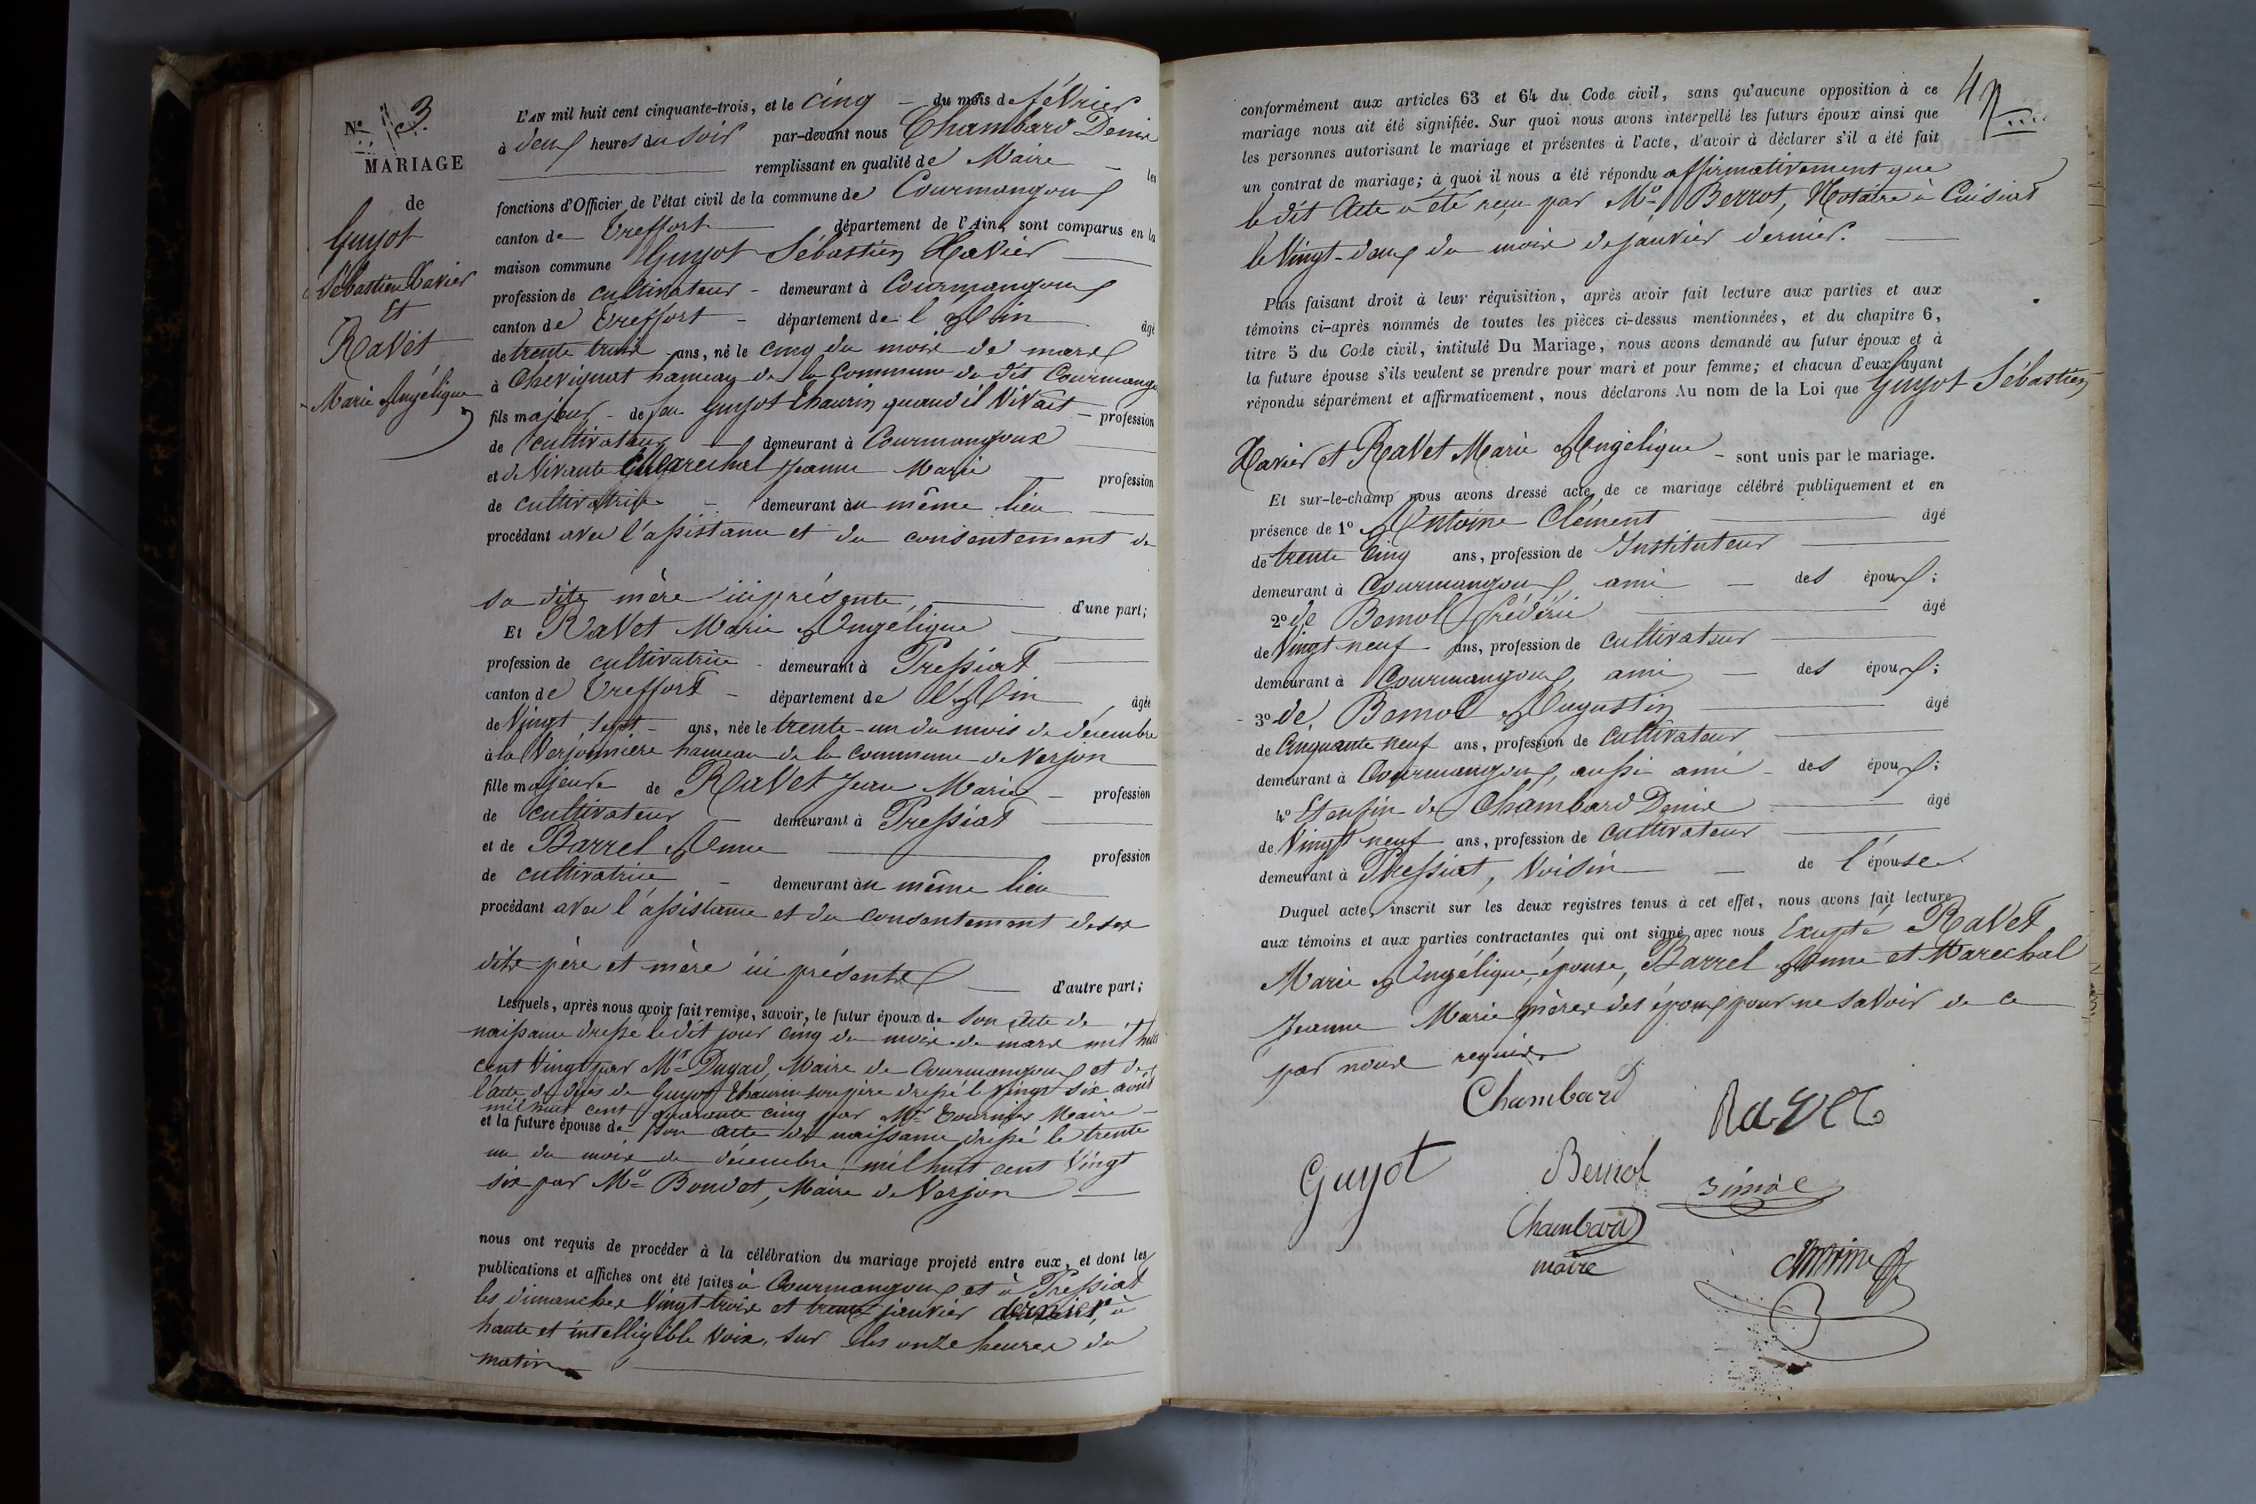 N° 3
MARIAGE
de
Guyot
Sébastien Xavier
Et
Ravet
Marie Angélique
L'AN mil huit cent cinquante-trois, et le cinq du mois de février
à deux heures du soir par-devant nous Chambard Denis
remplissant en qualité de Maire les
fonctions d'Officier de l'état civil de la commune de Courmangoux
canton de Treffort département de l'Ain, sont comparus en la
maison commune Guyot Sébastien Xavier
profession de cultivateur - demeurant à Courmangoux
canton de Treffort - département de l'Ain âgé
de trente trois ans, né le cinq du mois de mars
à Chevignat hameau de la commune du dit Courmangoux
fils majeur de feu Guyot Thaurin quand il vivait - profession
de cultivateur demeurant à Courmangoux
et de vivante Marechal Jeanne Marie profession
de cultivatrice - demeurant au même lieu
procédant avec l'assistance et du consentement de
sa dite mère ici présente, d'une part;
Et Ravet Marie Angélique
profession de cultivatrice - demeurant à Pressiat
canton de Treffort - département de l'Ain âgée
de Vingt sept - ans, née le trente-un du mois de décembre
à la Verjonnière hameau de la commune de Verjon
fille majeure de Ravet Jean Marie - profession
de cultivateur demeurant à Pressiat
et de Barrel Anne profession
de cultivatrice - demeurant au même lieu
procédant avec l'assistance et du consentement de ses
dits père et mère ici présents d'autre part;
Lesquels, après nous avoir fait remise, savoir, le futur époux de son acte de
naissance dressé le dit jour cinq du mois de mars mil huit
cent vingt par Mr Dugad, Maire de Courmangoux et de
l'acte de décès de Guyot Thaurin son père dressé le vingt six août
mil huit cent quarante cinq par Mr Tournier Maire
et la future épouse de son acte de naissance dressé le trente
un du mois de décembre mil huit cent vingt
six par Mr Boudet, Maire de Verjon
nous ont requis de procéder à la célébration du mariage projeté entre eux, et dont les
publications et affiches ont été faites à Courmangoux et à Pressiat
les dimanches vingt-trois et trente janvier dernier, à
haute et intelligible voix, sur les onze heures du
matin
4
conformément aux articles 63 et 64 du Code civil, sans qu'aucune opposition à ce
mariage nous ait été signifiée. Sur quoi nous avons interpellé les futurs époux ainsi que
les personnes autorisant le mariage et présentes à l'acte, d'avoir à déclarer s'il a été fait
un contrat de mariage; à quoi il nous a été répondu affirmativement que
le dit Acte a été reçu par Me Berrot, Notaire à Cuisiat
le Vingt-deux du mois de janvier dernier.
Puis faisant droit à leur réquisition, après avoir fait lecture aux parties et aux
témoins ci-après nommés de toutes les pièces ci-dessus mentionnées, et du chapitre 6,
titre 5 du Code civil, intitulé Du Mariage, nous avons demandé au futur époux et à
la future épouse s'ils veulent se prendre pour mari et pour femme; et chacun d'eux ayant
répondu séparément et affirmativement, nous déclarons Au nom de la Loi que Guyot Sébastien
Xavier et Ravet Marie Angélique - sont unis par le mariage.
Et sur-le-champ nous avons dressé acte de ce mariage célébré publiquement et en
présence de 1° Antoine Clément âgé
de trente cinq ans, profession de Instituteur
demeurant à Courmangoux, ami des époux;
2° de Bernol Frédéric âgé
de Vingt neuf ans, profession de cultivateur
demeurant à Courmangoux, ami des époux;
3° de Bernol Augustin âgé
de Cinquante neuf ans, profession de cultivateur
demeurant à Courmangoux, aussi ami des époux;
4° Et enfin de Chambard Denis âgé
de Vingt neuf ans, profession de cultivateur
demeurant à Pressiat, voisin de l'épouse.
Duquel acte, inscrit sur les deux registres tenus à cet effet, nous avons fait lecture
aux témoins et aux parties contractantes qui ont signé avec nous Excepté Ravet
Marie Angélique, épouse, Barrel Anne et Marechal
Jeanne Marie mères des époux pour ne savoir de ce
par nous requis
Chambard
Ravet
Guyot
Bernol
Chambard
maire
Antoine